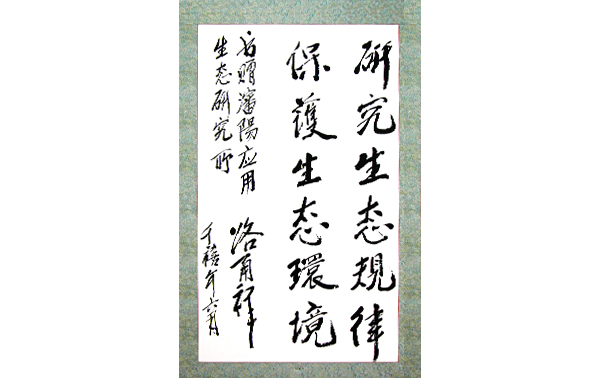 研究生态規律
保護生态環境
书贈瀋陽应用
生态研究所
路甬祥
千禧年六月